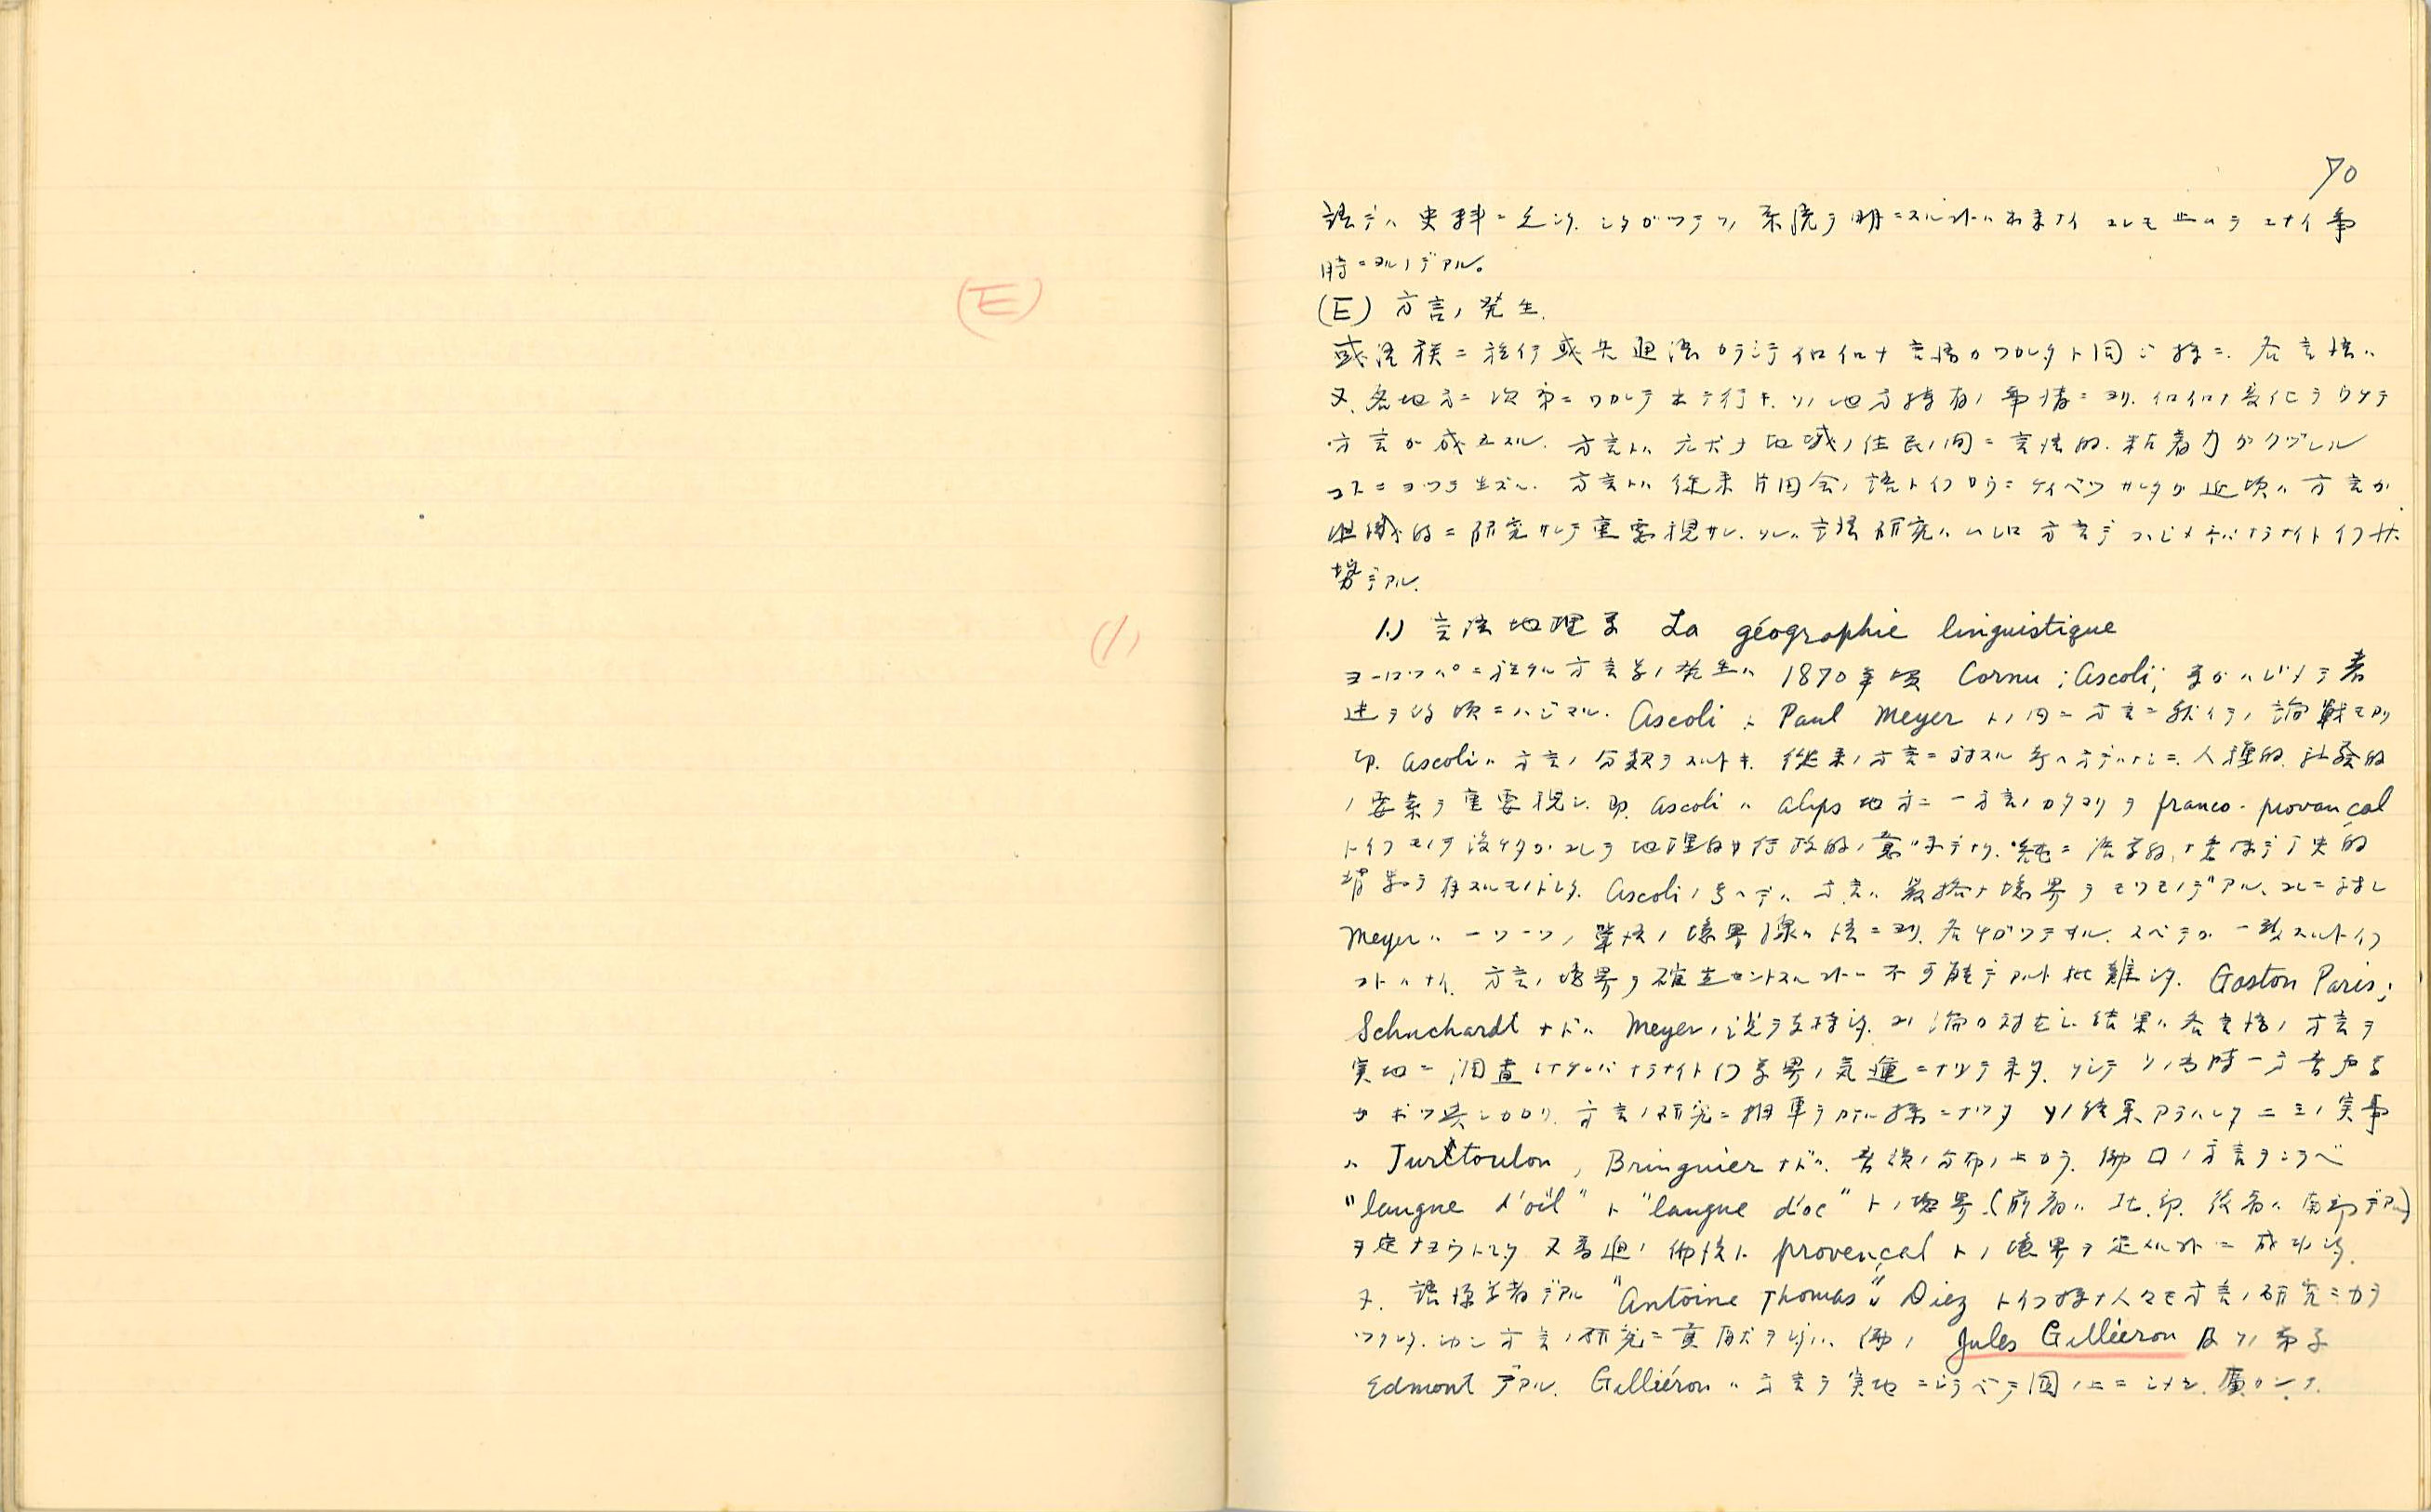 (E)
(1)
70
語デハ史料ニ乏シク. シタガツテソノ系統ヲ明ニスルコトハ出来ナイ コレモ止ムヲエナイ事
時ニヨルノデアル。
(E) 方言ノ発生.
或語族ニ於イテ或共通語カラシテイロイロナ言語ガワカレタト同ジ様ニ. 各言語ハ
又. 各地方ニ次第ニワカレテ出テ行キ. ソノ地方特有ノ事情ニヨリ. イロイロナ変化ヲウケテ
方言ガ成立スル. 方言トハ 広大ナ地域ノ住民ノ間ニ言語的. 粘着力ガクヅレル
コトニヨツテ生ズル. 方言トハ 従来片田舎ノ語トイフ ケイベツサレタガ近頃ハ方言ガ
組織的ニ研究サレテ重要視サレ. 言語研究ハムシロ方言デハジメネバナラナイトイフ
デアル.
1.) 言語地理学 La géographie linguistique
ヨーロツパニ於ケル方言学ノ発生ハ 1870年頃 Cornu ; Ascoli; 等ガハジメテ著
ハジマル. Ascoli ト Paul Meyer トノ間ニ方言ニ就イテノ論戦モアリ
即. Ascoliハ方言ノ分類ヲスルトキ. 従来ノ方言ニ対スル考ヘ方 人種的.
ノ要素ヲ重要視シ. 即. Ascoli ハ Alps 地方ニ一方言ノカタマリヲ franco-provançal
トイフモノヲ設ケタガ. コレヲ地理的 行政的ノ意味デナク. 純ニ語学的ナ意味デ
ヲ有スルモノトシタ. Ascoliノ考ヘデハ 方言ハ厳格ナ境界ヲモツモノデアル. コレニ対シ
Meyerハ一ツ一ツノ単語ノ境界線ハ語ニヨリ. 各チガツテヰル. スベテガ一致スルトイフ
コトハナイ. 方言ノ境界ヲ確立セントスルコトハ不可能デアルト批難シタ. Gaston Paris;
Schuchardt ナドハ Meyerノ説ヲ支持シタ. コノ論ガ対立シ結果ハ各言語ノ方言ヲ
実地ニ調査シナケレバナラナイトイフ学界ノ気運ニナツテ来タ. ソシテソノ当時一方音声学
ガボツ興シカカリ. 方言ノ研究ニ拍車ヲカケル様ニナツタ ソノ結果アラハレタ二三ノ実事
ハ Turttoulon, Bringuier ナドハ. 音韻ノ分布ノ上カラ. 仏国ノ方言ヲシラベ
"langue d'oïl" ト "langue d'oc" トノ境界 (前者ハ北部. 後者ハ南部デアル)
ヲ定 又 仏語ト provençal トノ境界ヲ定メルコトニ成功シタ.
又. 語源学者デアル "Antoine Thomas" Diez トイフ様ナ人々モ方言ノ研究ニ
シカシ方言ノ研究ニ貢献ヲシタノハ. 仏ノ Jules Gilliéron 及ソノ弟子
Edmont デアル. Gilliéron ハ方言ヲ実地ニシラベテ図ノ上ニシメシ.